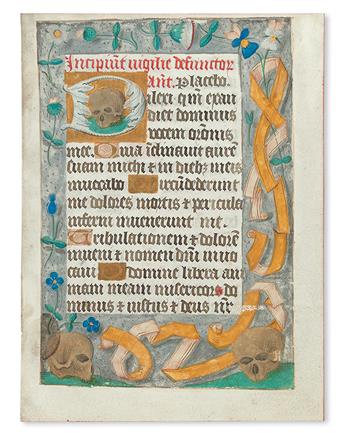 Incipiūt vigilie defunctor
Ant. Placebo.
Dilexi qm̄ exau
diet dominus
vocem orōnis
mee. Quia īclinavit aurē
suam michi & in dieb; meis
invocabo Circūdederunt
me dolores mortis & pericula
inferni invenerunt me.
Tribulationem & dolorē
inveni & nomen dn̄i invo
cavi O domine libera an
imam meam misericors do
minus & iustus & deus nr̄